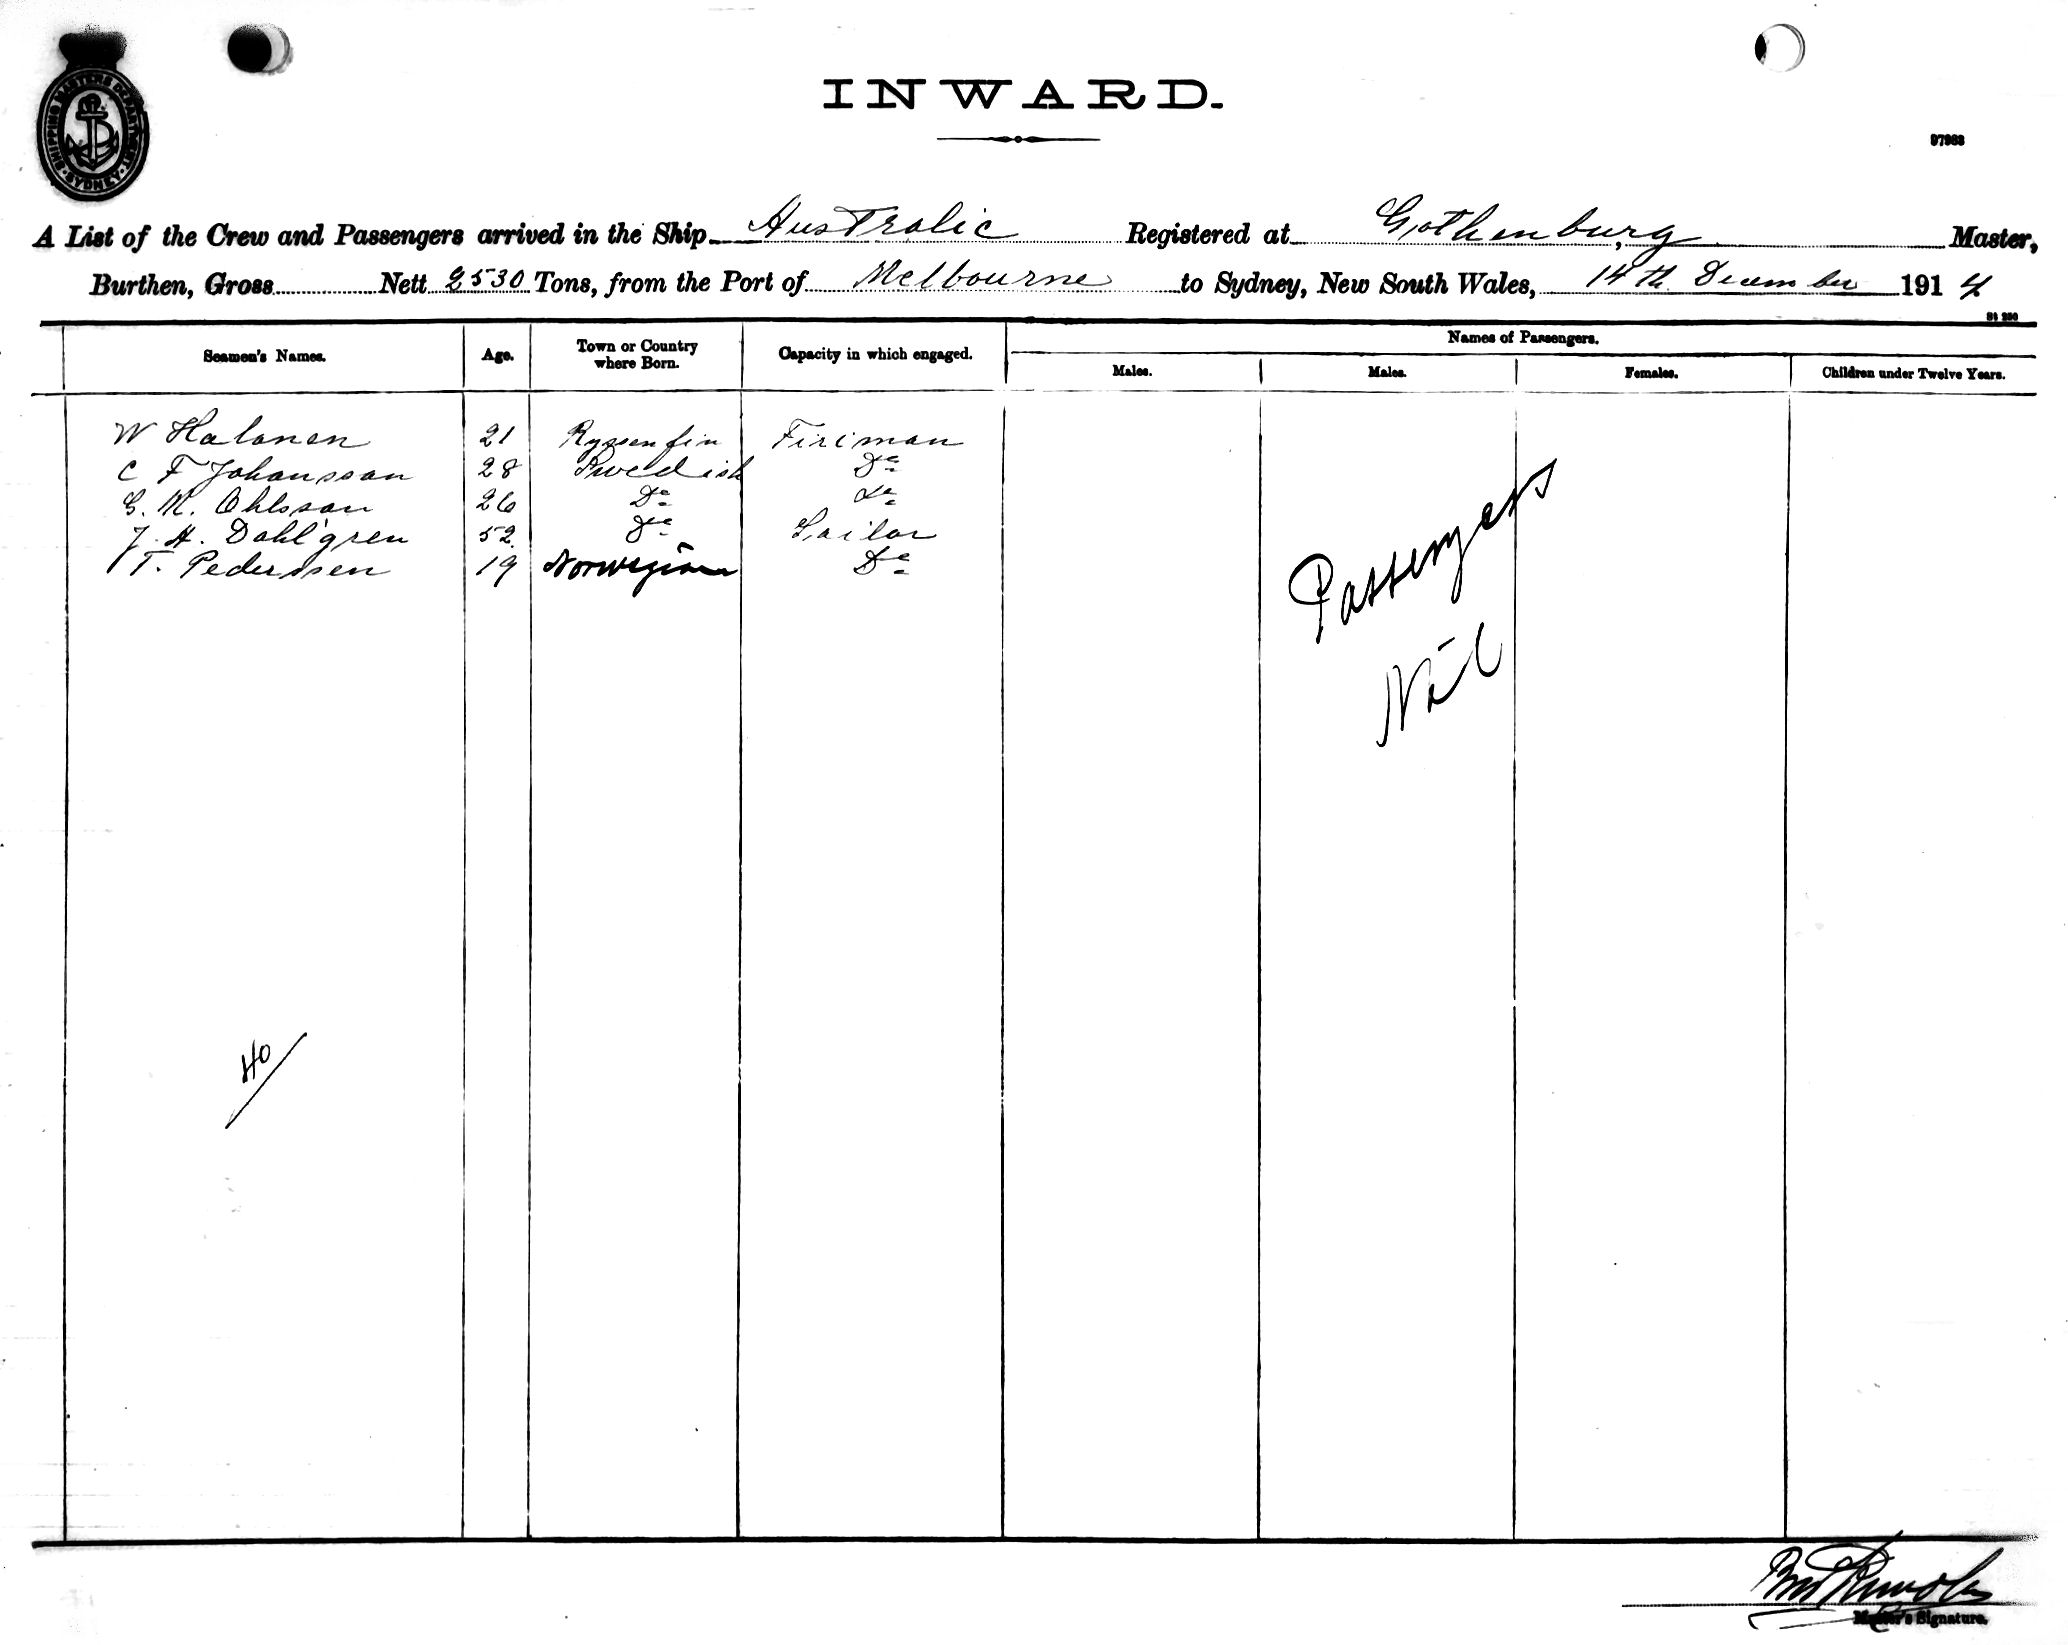 SHIPPING MASTERS DEPARTMENT SYDNEY
INWARD.
97963
A List of the Crew and Passengers arrived in the Ship Australic Registered at Gothenburg, Master,
Burthen, Gross Nett 2530 Tons, from the Port of Melbourne to Sydney, New South Wales, 14th December 1914
Seamen's Names. Age. Town or Country where Born. Capacity in which engaged. Names of Passengers.
Males. Males. Females. Children under Twelve Years.
W Halonen 21 Ryssenfin Firiman
C F Johansson 28 Swedish Do
G. M. Ohlsson 26 Do Do
J. A. Dahlgren 52 Do Sailor
T. Pederssen 19 Norwegian Do
Passengers
Nil
40
Master's Signature.